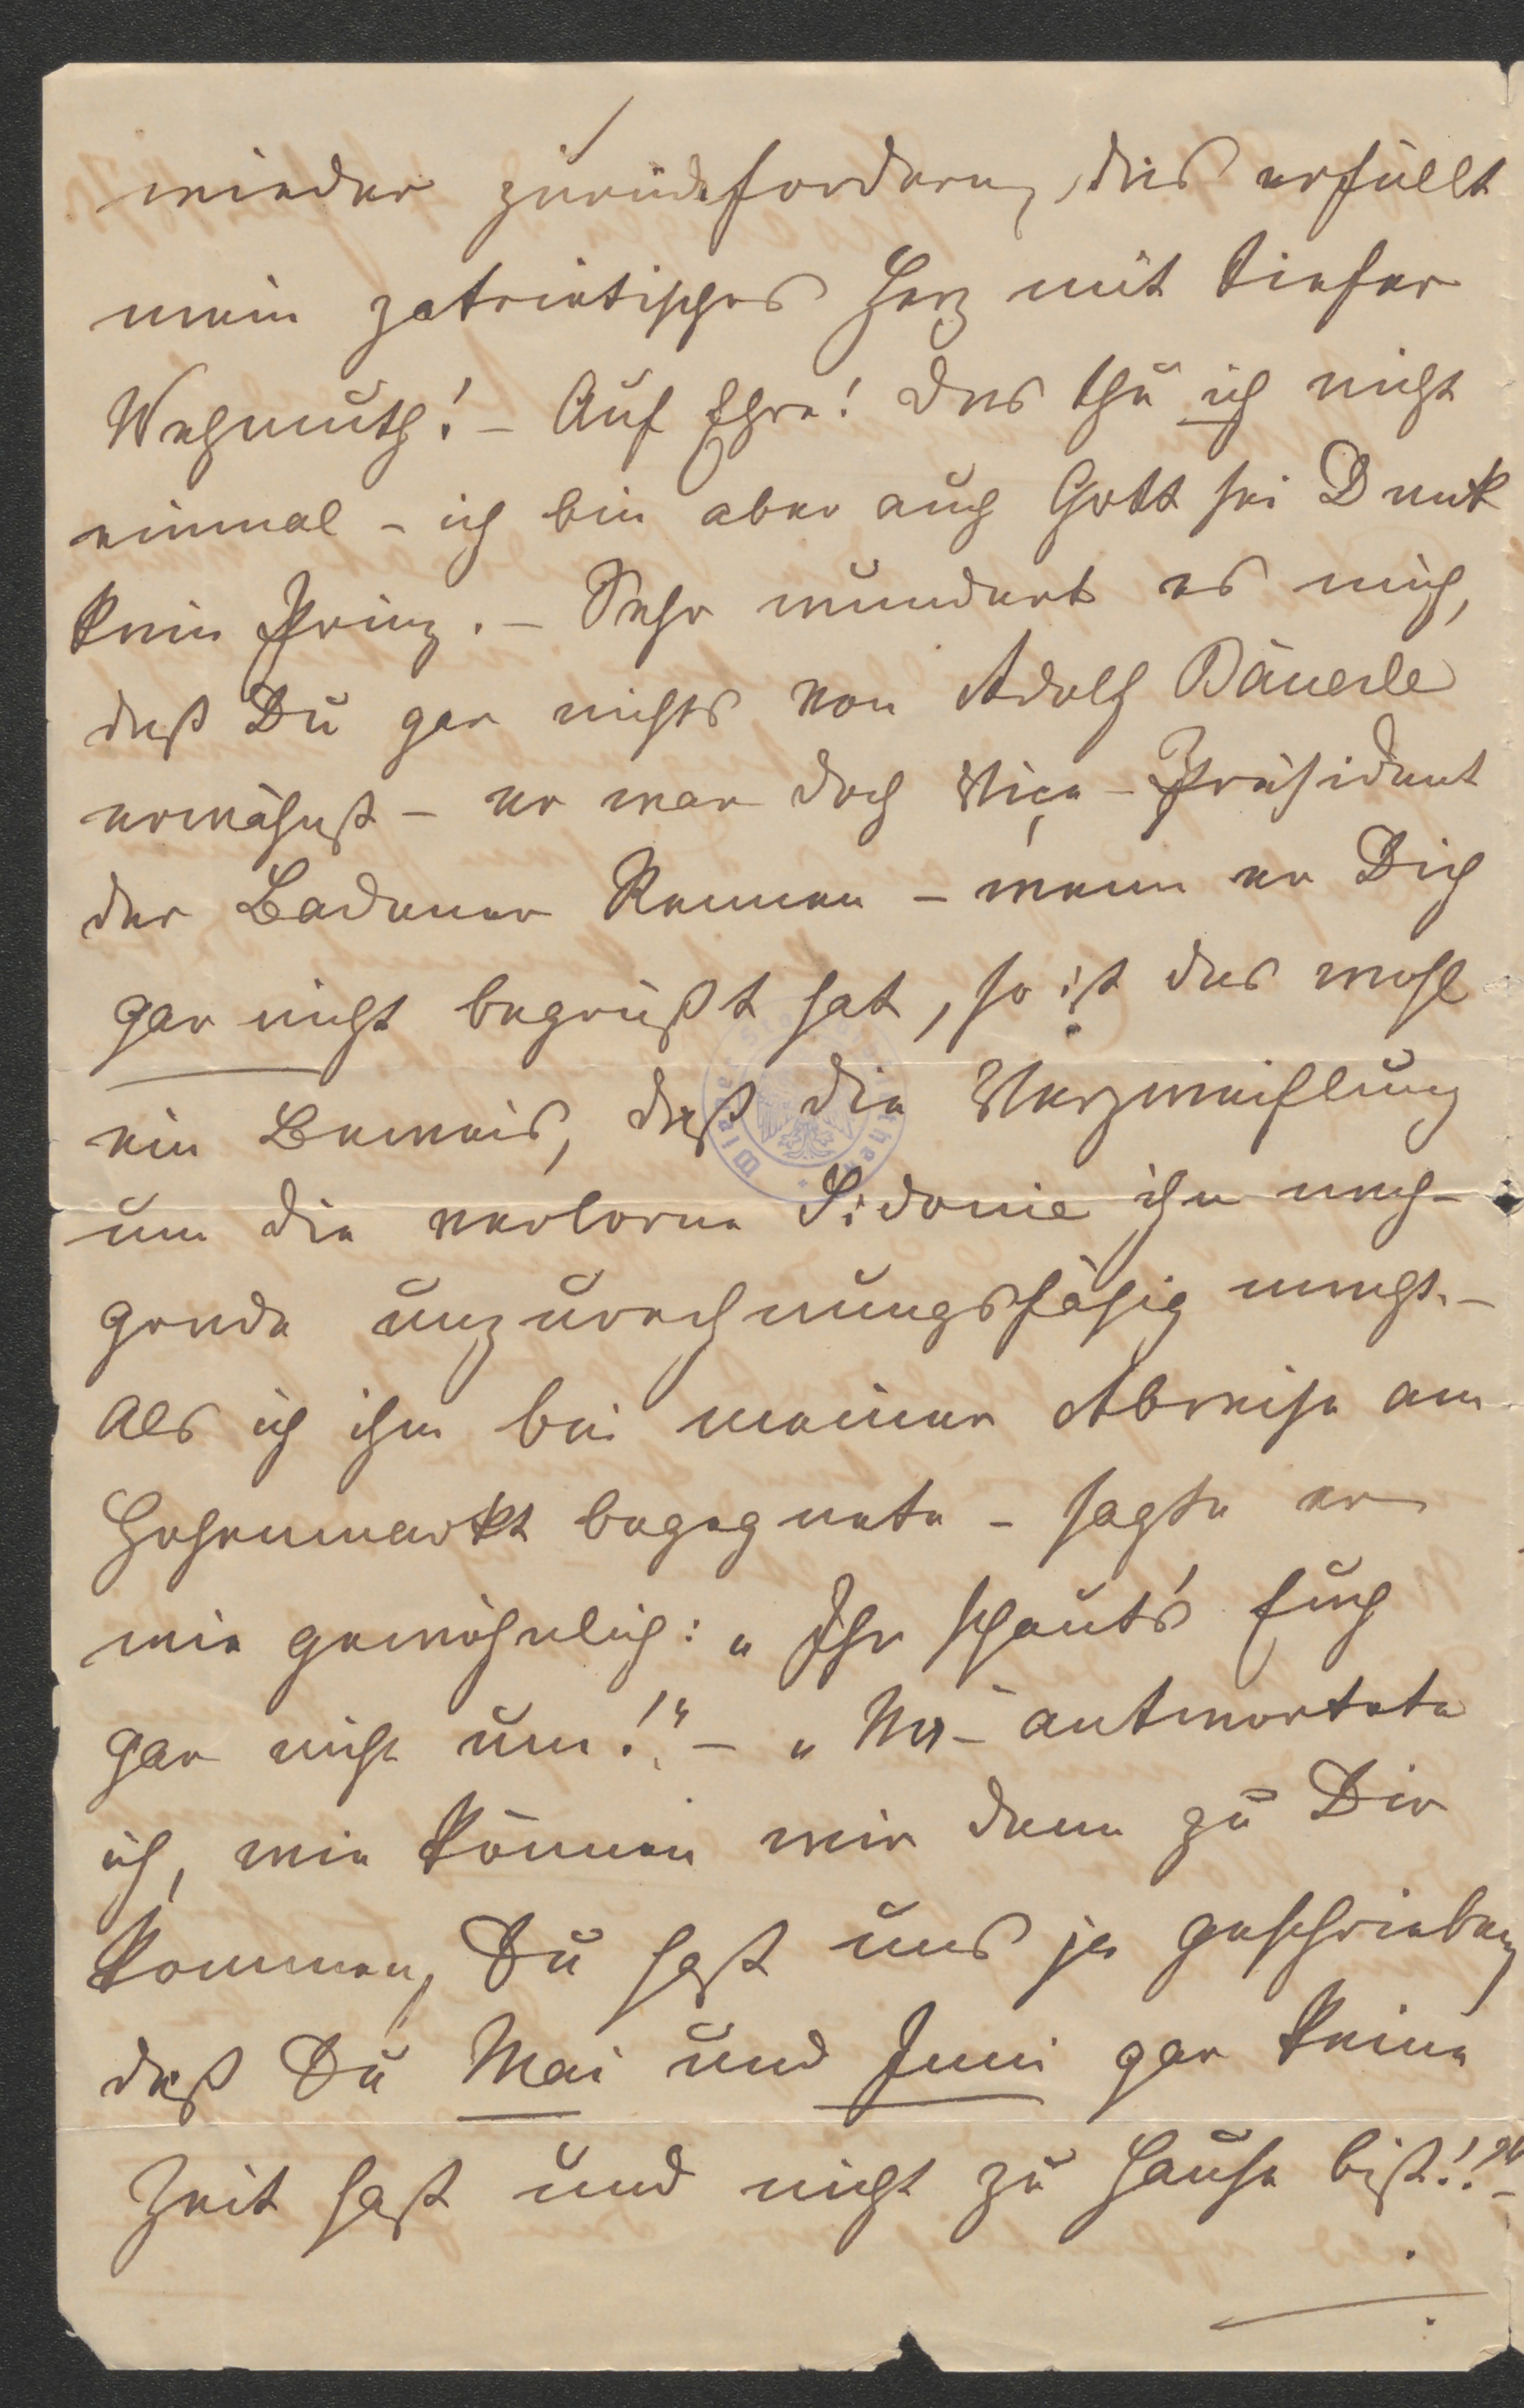 wieder zurückfordern, dies erfüllt
mein patriotisches Herz mit tiefer
Wehmuth! – Auf Ehre! Das thu ich nicht
einmal – ich bin aber auch Gott sei Dank
kein Prinz. – Sehr wundert es mich,
daß Du gar nichts von Adolf Bäuerle
erwähnst – er war doch Vice-Präsident
der Badener Rennen – wenn er Dich
gar nicht begrüßt hat, so ist das wohl
ein Beweis, daß die Verzweiflung
um die verlorne Sidonie ihn nach-
grade unzurechnungsfähig macht. –
Als ich ihm bei meiner Abreise am
Hohenmarkt begegnete – sagte er
wie gewöhnlich: „Ihr schauts Euch
gar nicht um!" – „Na – antwortete
ich, wie können wir denn zu Dir
kommen, Du hast uns ja geschrieben
daß Du Mai und Juni gar keine
Zeit hast und nicht zu Hause bist!!" –